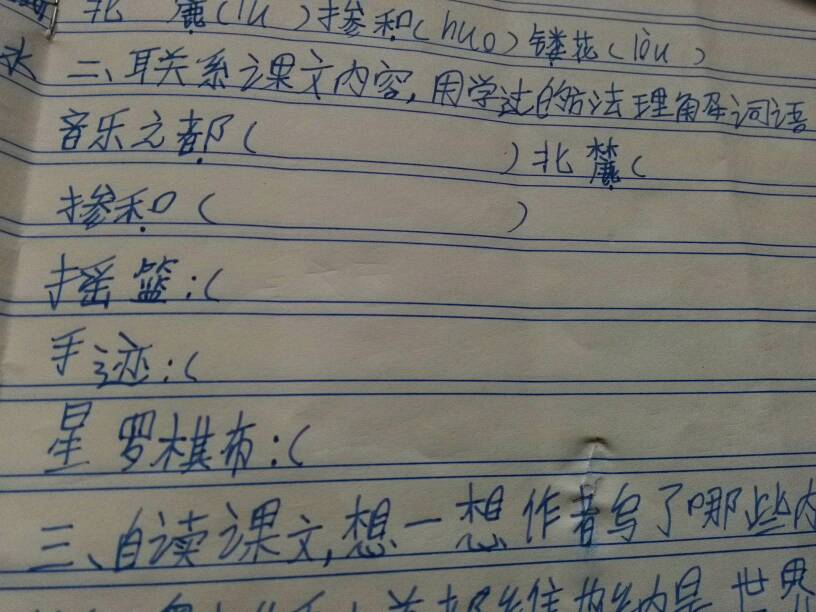 北麓(lù)掺和(huo)镂花(lòu)
二、联关系课文内容,用学过的方法理解词语
音乐之都()北麓(
掺和()
摇篮:(
手迹:(
星罗棋布:(
三、自读课文,想一想作者写了哪些内
维也纳是世界